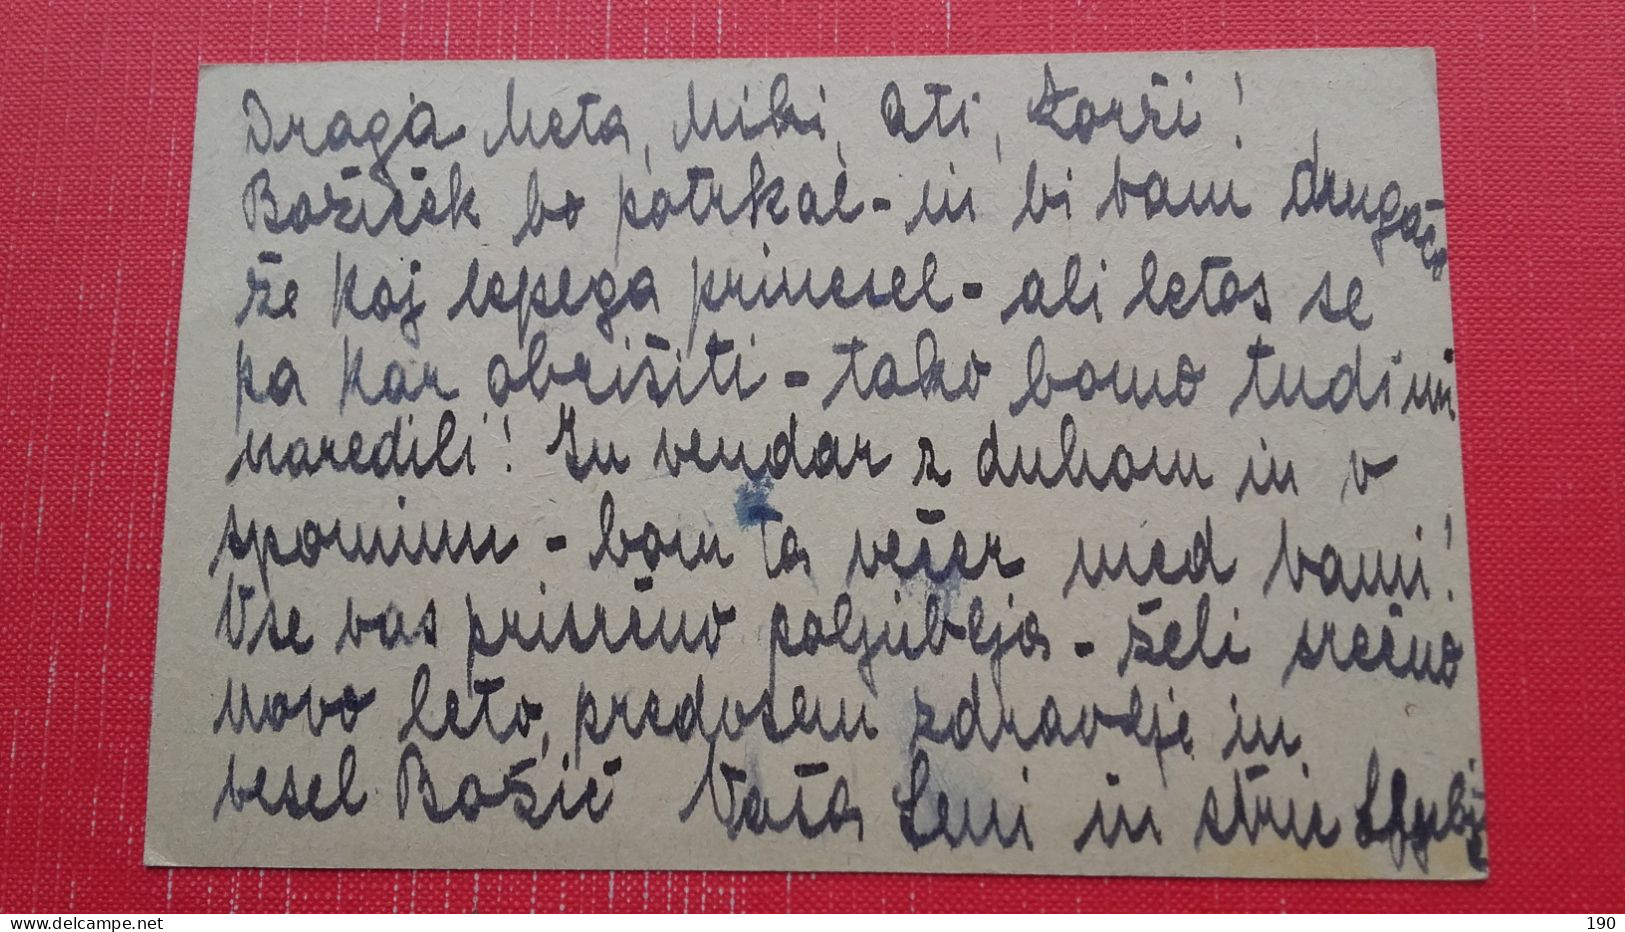 Draga Meta, Miki, Ati, Zorži!
Božiček bo potrkal - in bi vam drugače
že kaj lepega prinesel - ali letos se
pa kar obrišiti - tako bomo tudi mi
naredili! In vendar z duhom in v
spominu - bom ta večer med vami!
Vse vas prisrčno poljublja - želi srečno
novo leto, predvsem zdravje in
vesel Božič Vaša Leni in stric
190